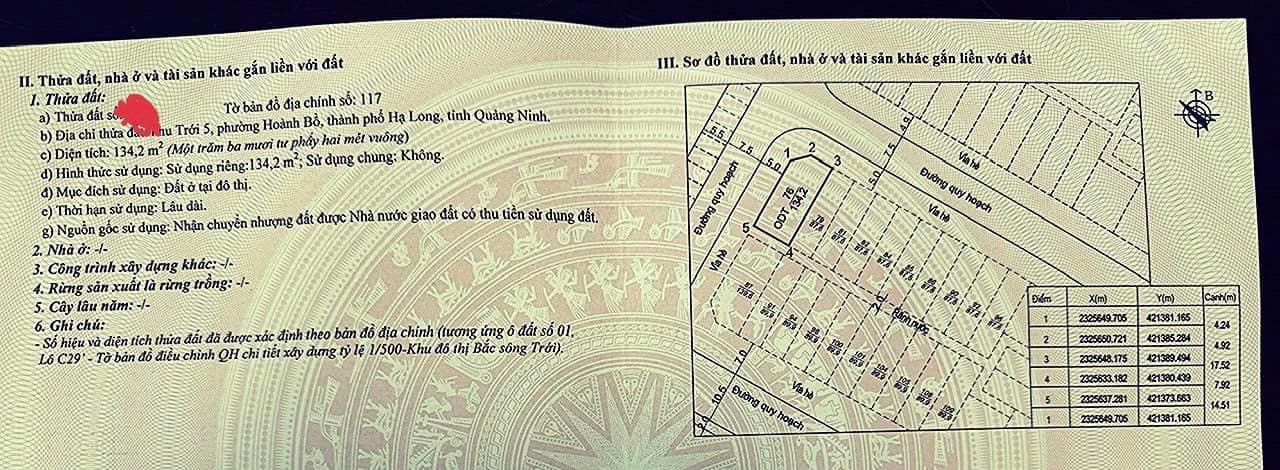 II. Thửa đất, nhà ở và tài sản khác gắn liền với đất
1. Thửa đất:
a) Thửa đất số Tờ bản đồ địa chính số: 117
b) Địa chỉ thửa đất: Khu Trới 5, phường Hoành Bồ, thành phố Hạ Long, tỉnh Quảng Ninh.
c) Diện tích: 134,2 m² (Một trăm ba mươi tư phẩy hai mét vuông)
d) Hình thức sử dụng: Sử dụng riêng:134,2 m²; Sử dụng chung: Không.
đ) Mục đích sử dụng: Đất ở tại đô thị.
e) Thời hạn sử dụng: Lâu dài.
g) Nguồn gốc sử dụng: Nhận chuyển nhượng đất được Nhà nước giao đất có thu tiền sử dụng đất.
2. Nhà ở: -/-
3. Công trình xây dựng khác: -/-
4. Rừng sản xuất là rừng trồng: -/-
5. Cây lâu năm: -/-
6. Ghi chú:
- Số hiệu và diện tích thửa đất đã được xác định theo bản đồ địa chính (tương ứng ô đất số 01,
Lô C29' - Tờ bản đồ điều chỉnh QH chi tiết xây dựng tỷ lệ 1/500-Khu đô thị Bắc sông Trới).
III. Sơ đồ thửa đất, nhà ở và tài sản khác gắn liền với đất
B
5.5
7.5
5.0
1
2
3
4
5
ODT 76
134,2
4.9
7.5
5.0
Vỉa hè
Đường quy hoạch
Vỉa hè
Đường quy hoạch
Vỉa hè
Rãnh nước
Vỉa hè
Đường quy hoạch
7.0
10.5
2.0
Điểm X(m) Y(m) Cạnh(m)
1 2325649.705 421381.165
4.24
2 2325650.721 421385.284
4.92
3 2325648.175 421389.494
17.52
4 2325633.182 421380.439
7.92
5 2325637.281 421373.663
14.51
1 2325649.705 421381.165